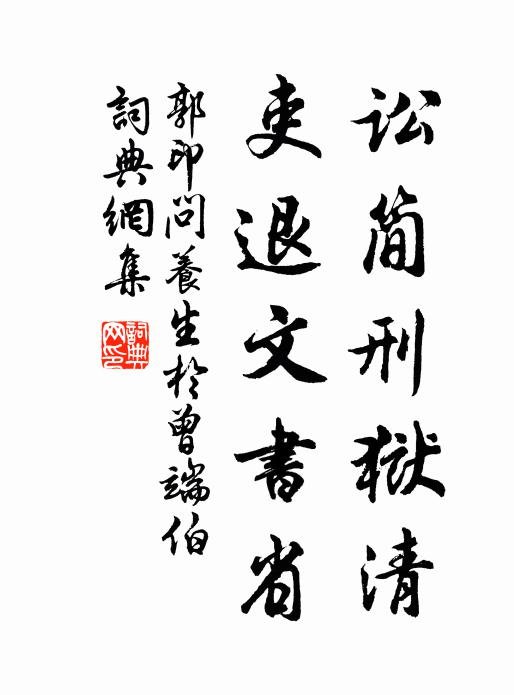 讼简刑獄清
吏退文書省
郭印問養生於曾端伯
詞典網集
詞典網印